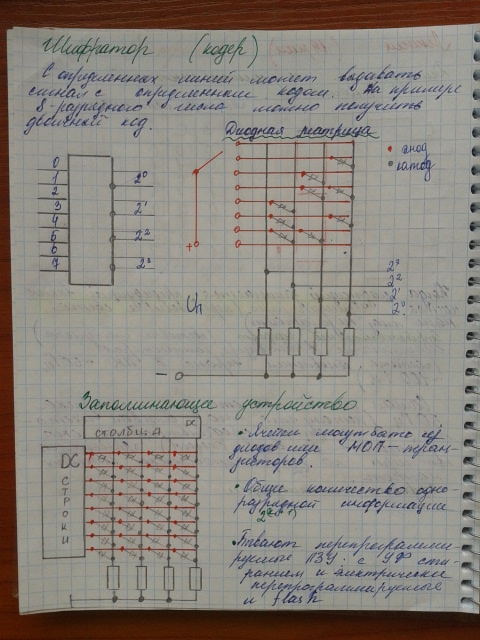 Шифратор (кодер)
С определённых линий может выдавать
сигнал с определенным кодом. На примере
8-разрядного числа можно получить
двоичный код.
Диодная матрица
анод
катод
0
1
2
3
4
5
6
7
2⁰
2¹
2²
2³
+
Uп
2³
2²
2¹
2⁰
−
Запоминающее устройство
DC
столбца
DC
строки
• Ячейки могут быть из
диодов или МОП-тран-
зисторов.
• Общее количество одно-
разрядной информации
• Бывают перепрограмми-
руемые ПЗУ с УФ сти-
ранием и электрически
перепрограммируемые
и flash